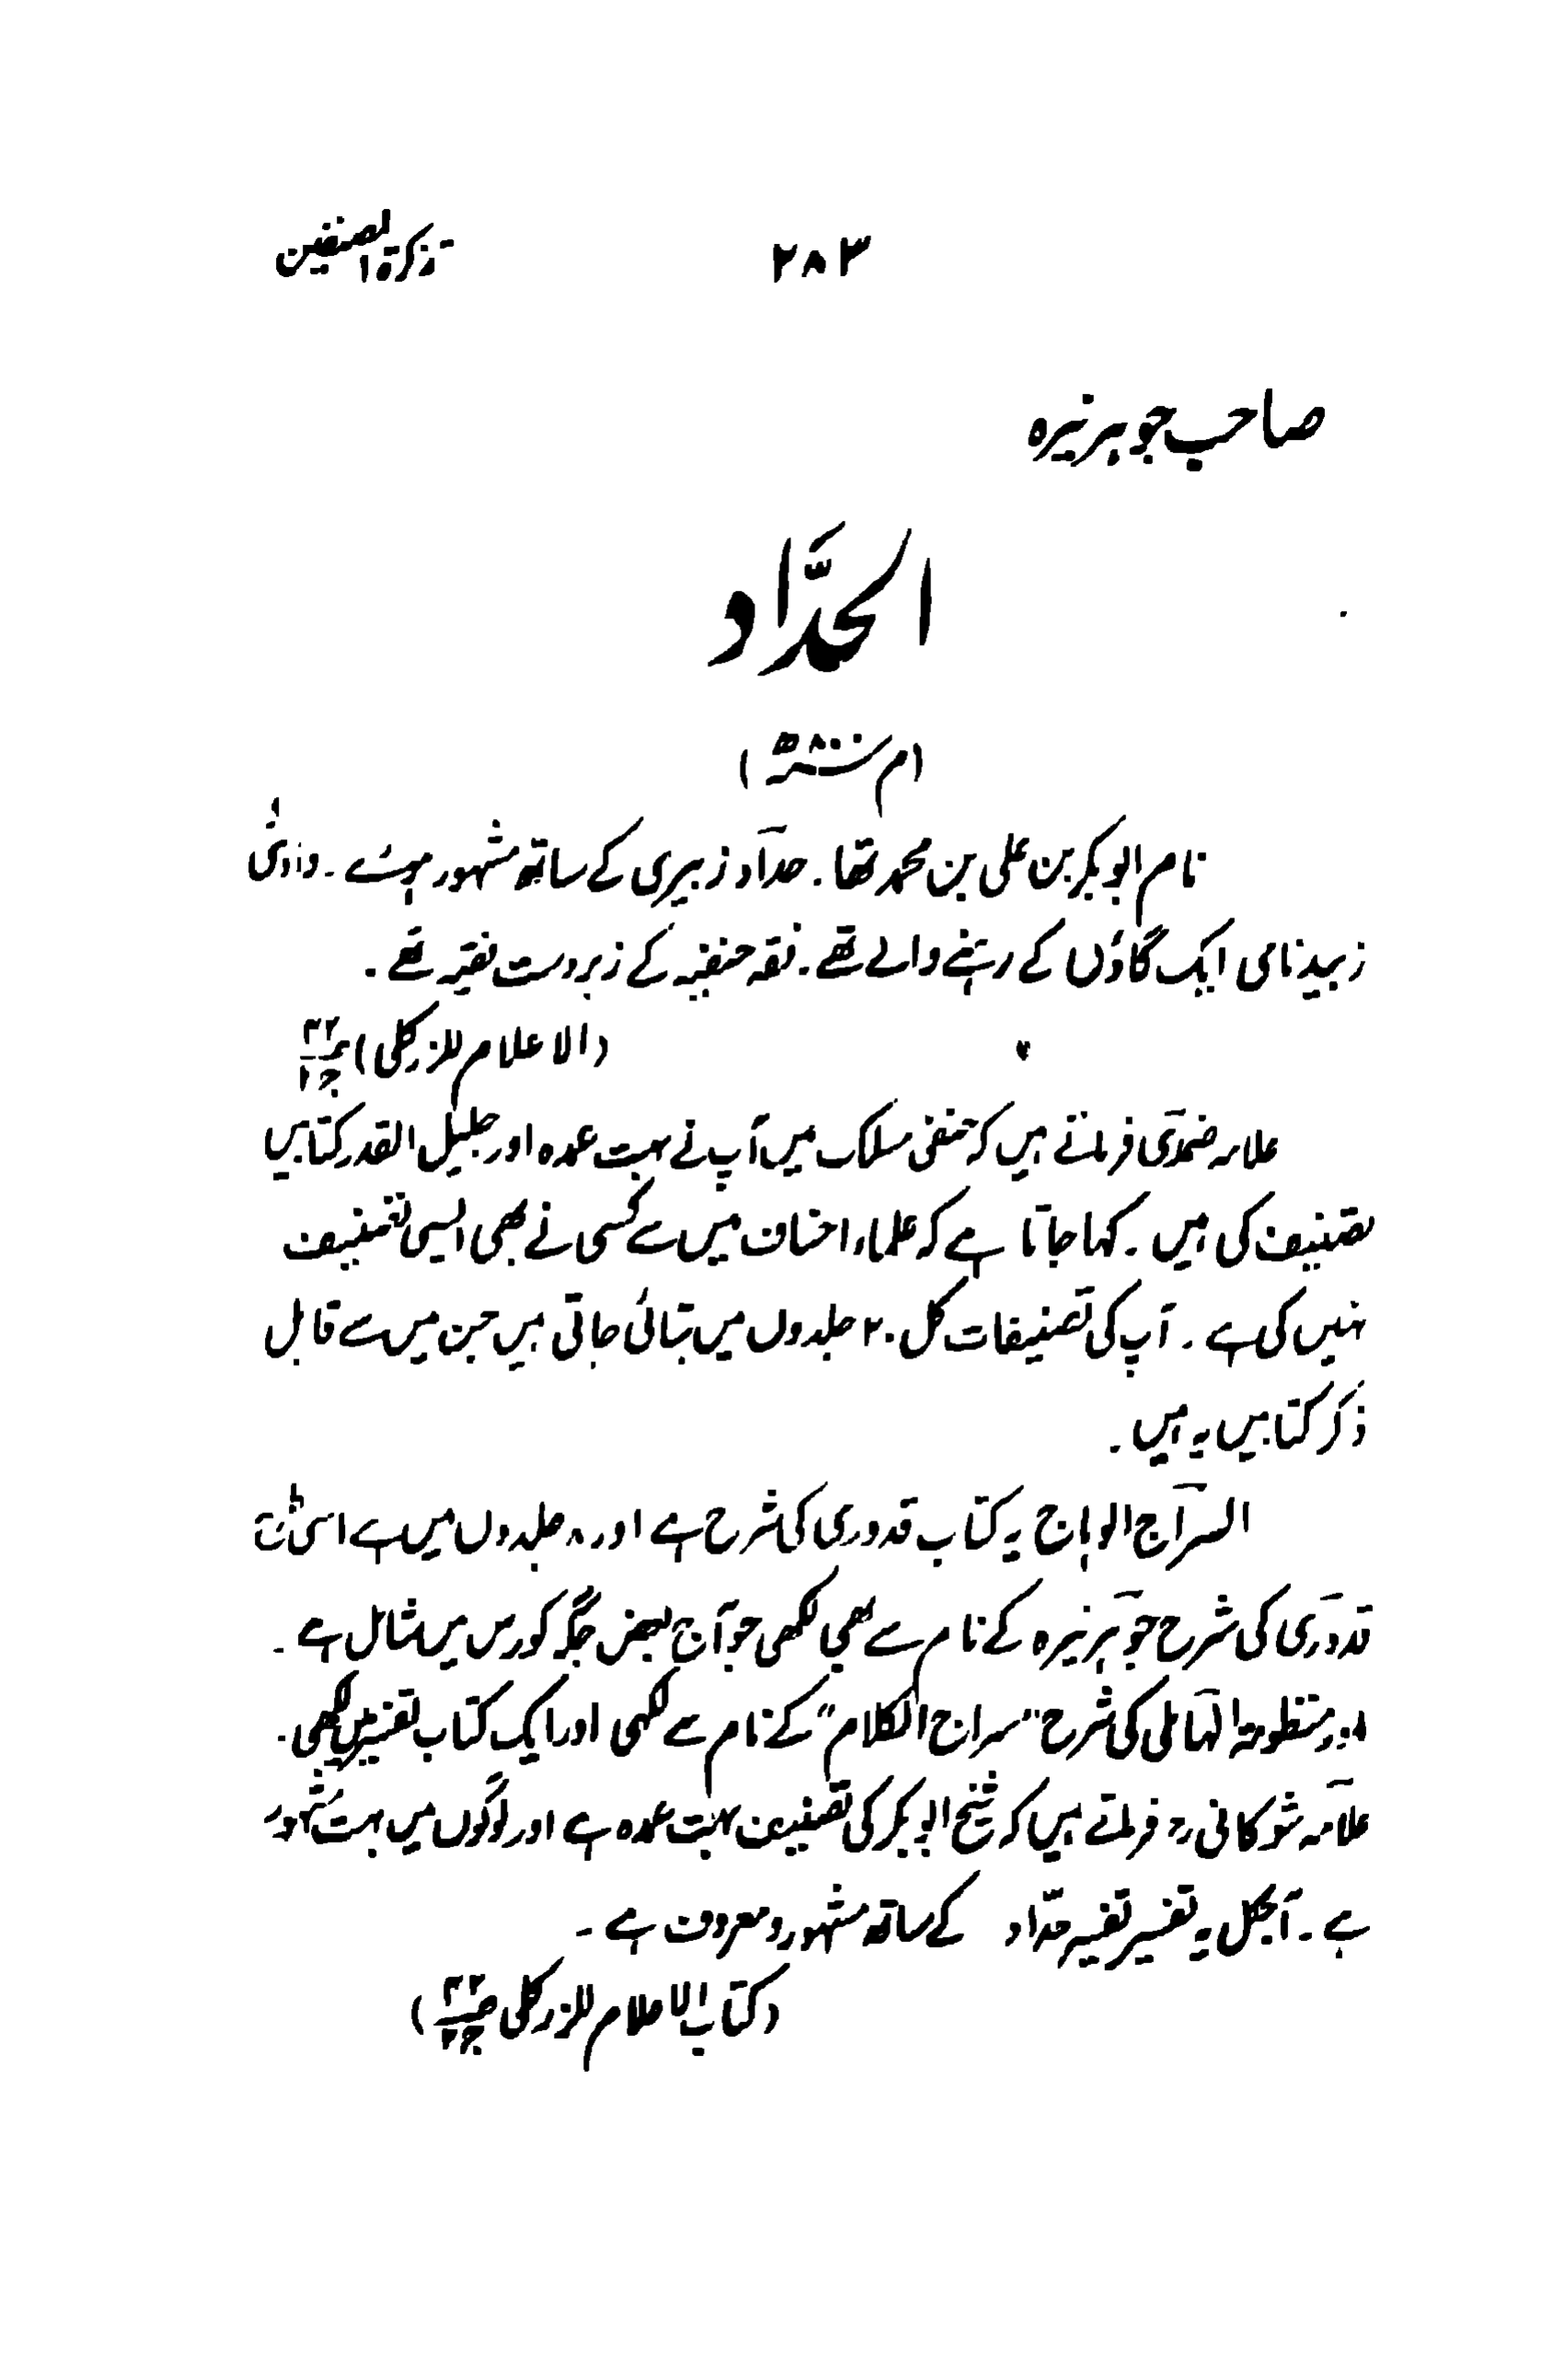 تذکرۃ المصنفین
۲۸۳
صاحب جوہر نیرہ
الحدَّاد
(م ۸۰۰ھ)
نام ابوبکر بن علی بن محمد تھا۔ حداد زبیری کے ساتھ مشہور ہوئے۔ وادی
زبید نامی ایک گاؤں کے رہنے والے تھے۔ فقہ حنفیہ کے زبردست فقیہ تھے۔
(الاعلام للزرکلی)
علامہ ضمدی فرماتے ہیں کہ حنفی مسلک میں آپ نے بہت عمدہ اور جلیل القدر کتابیں
تصنیف کی ہیں۔ کہا جاتا ہے کہ علماء احناف میں سے کسی نے بھی ایسی تصنیف
نہیں کی ہے۔ آپ کی تصنیفات کل ۲۰ جلدوں میں بتائی جاتی ہیں جن میں سے قابل
ذکر کتابیں یہ ہیں۔
السراج الوہاج یہ کتاب قدوری کی شرح ہے اور ۸ جلدوں میں ہے اسی
قدوری کی شرح جوہر نیرہ کے نام سے بھی لکھی جو آج بعض جگہ کورس میں شامل ہے۔
اور منظومۃ الہاملی کی شرح "سراج الکلام" کے نام سے لکھی اور ایک کتاب تفسیر میں لکھی۔
علامہ شوکانی رح فرماتے ہیں کہ شیخ ابوبکر کی تصنیف بہت عمدہ ہے اور لوگوں میں بہت مشہور
ہے۔ آجکل یہ تفسیر تفسیر حدّاد کے ساتھ مشہور و معروف ہے۔
(کتاب الاعلام للزرکلی)